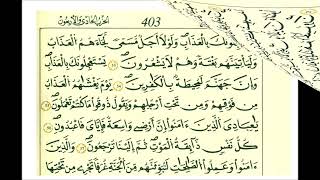 403 الحزب الحادي والأربعون
ـلُونَكَ بِالْعَذَابِ وَلَوْلَا أَجَلٌ مُسَمًّى لَجَاءَهُمُ الْعَذَابُ
وَلَيَأْتِيَنَّهُمْ بَغْتَةً وَهُمْ لَا يَشْعُرُونَ يَسْتَعْجِلُونَكَ بِالْعَذَابِ
وَإِنَّ جَهَنَّمَ لَمُحِيطَةٌ بِالْكَٰفِرِينَ يَوْمَ يَغْشَىٰهُمُ الْعَذَابُ
مِنْ فَوْقِهِمْ وَمِنْ تَحْتِ أَرْجُلِهِمْ وَيَقُولُ ذُوقُوا مَا كُنْتُمْ تَعْمَلُونَ
يَٰعِبَادِيَ الَّذِينَ ءَامَنُوا إِنَّ أَرْضِي وَٰسِعَةٌ فَإِيَّٰيَ فَاعْبُدُونِ
كُلُّ نَفْسٍ ذَائِقَةُ الْمَوْتِ ثُمَّ إِلَيْنَا تُرْجَعُونَ وَالَّذِينَ
ءَامَنُوا وَعَمِلُوا الصَّٰلِحَٰتِ لَنُبَوِّئَنَّهُمْ مِنَ الْجَنَّةِ غُرَفًا تَجْرِي مِنْ تَحْتِهَا